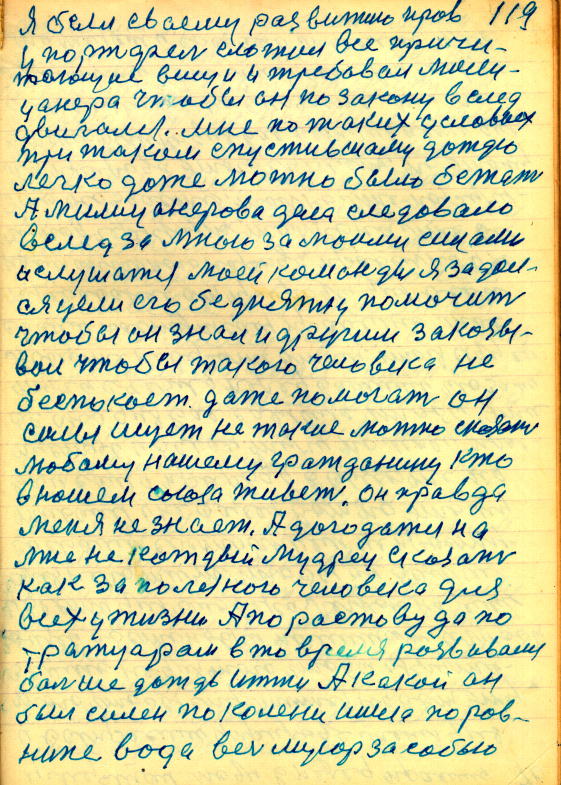 Я бели своему развитию прав 119
у порждрел сложил все причи-
тающие вещи и требовал мили-
цанера чтобы он по закону вслед
двигался. мне по таких условиях
при таком спустившему дождю
легко даже можно было бежать
А милицанерова дела следовало
вслед за мною за моими силами
и слушатся моей команды я задал-
ся цели его беднятку помочить
чтобы он знал и другим заказы-
вал чтобы такого человека не
беспокоет. даже помогат он
самый ищет не такие можно сказать
любому нашему гражданину кто
в нашем союза живет. он правда
меня не знает. А догодатся на
мне не каждый мудрец сказать
как за полезного человека для
всех у жизни А по растову да по
тратуарам в то время розвивался
больше дождь итти А какой он
был силен по колени ишла поров-
ниже вода веч мусор за собью